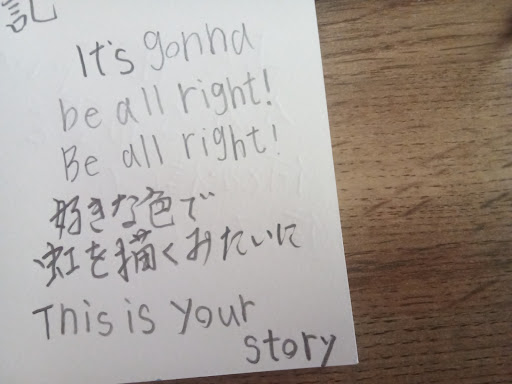 記
It's gonna
be all right!
Be all right!
好きな色で
虹を描くみたいに
This is your
story